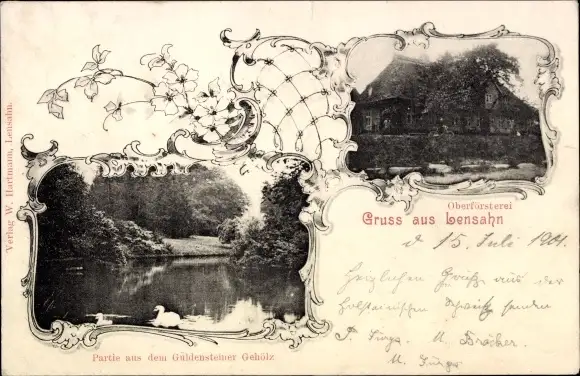 Verlag W. Hartmann, Lensahn.
Oberförsterei
Gruss aus Lensahn
d 15. Juli 1901.
Herzlichen Gruß aus der
Holsteinischen Schweiz senden
Partie aus dem Güldensteiner Gehölz